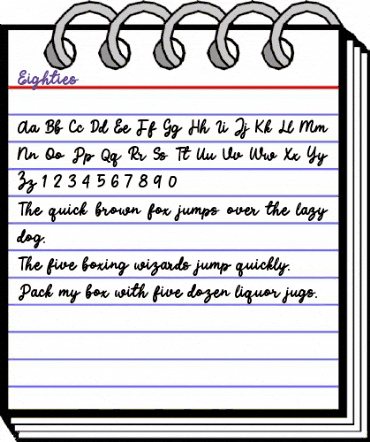 Eighties
Aa Bb Cc Dd Ee Ff Gg Hh Ii Jj Kk Ll Mm
Nn Oo Pp Qq Rr Ss Tt Uu Vv Ww Xx Yy
Zz 1 2 3 4 5 6 7 8 9 0
The quick brown fox jumps over the lazy
dog.
The five boxing wizards jump quickly.
Pack my box with five dozen liquor jugs.